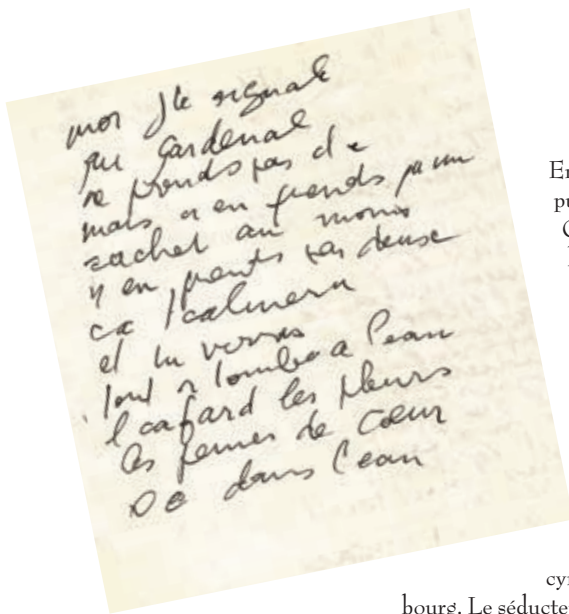 moi j te signale
que gardenal
ne prends pas d
mais n en prends qu un
sachet au moins
n en prends pas
ca t calmera
et tu verras
tout r tombe a l'eau
l cafard les pleurs
les peines de cœur
O O dans l'eau
En
pu
cyn
bourg. Le séducte